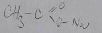 CH3-C
O
O-Na